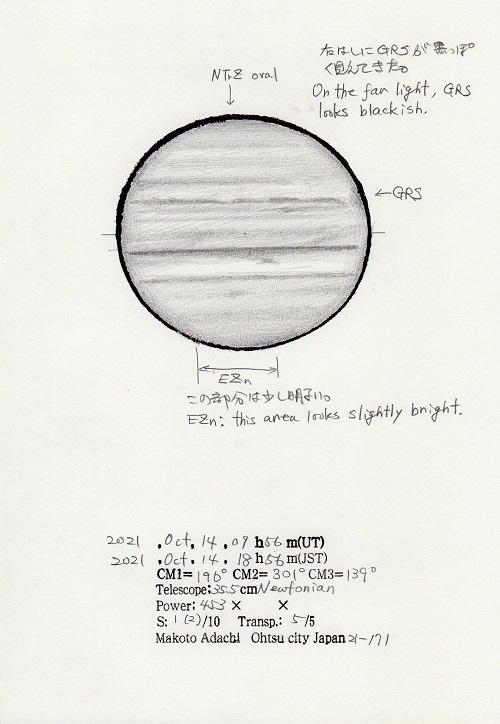 右はしにGRSが黒っぽ
く見えてきた。
On the far light, GRS
looks blackish.
NTrZ oval
←GRS
EZn
この部分は少し明るい。
EZn: this area looks slightly bright.
2021 , Oct, 14 , 09 h56 m(UT)
2021 , Oct, 14 , 18 h56 m(JST)
CM1= 196° CM2= 301° CM3= 139°
Telescope: 355cm Newtonian
Power: 453 × ×
S: 1 (2)/10 Transp.: 5/5
Makoto Adachi Ohtsu city Japan 21-171